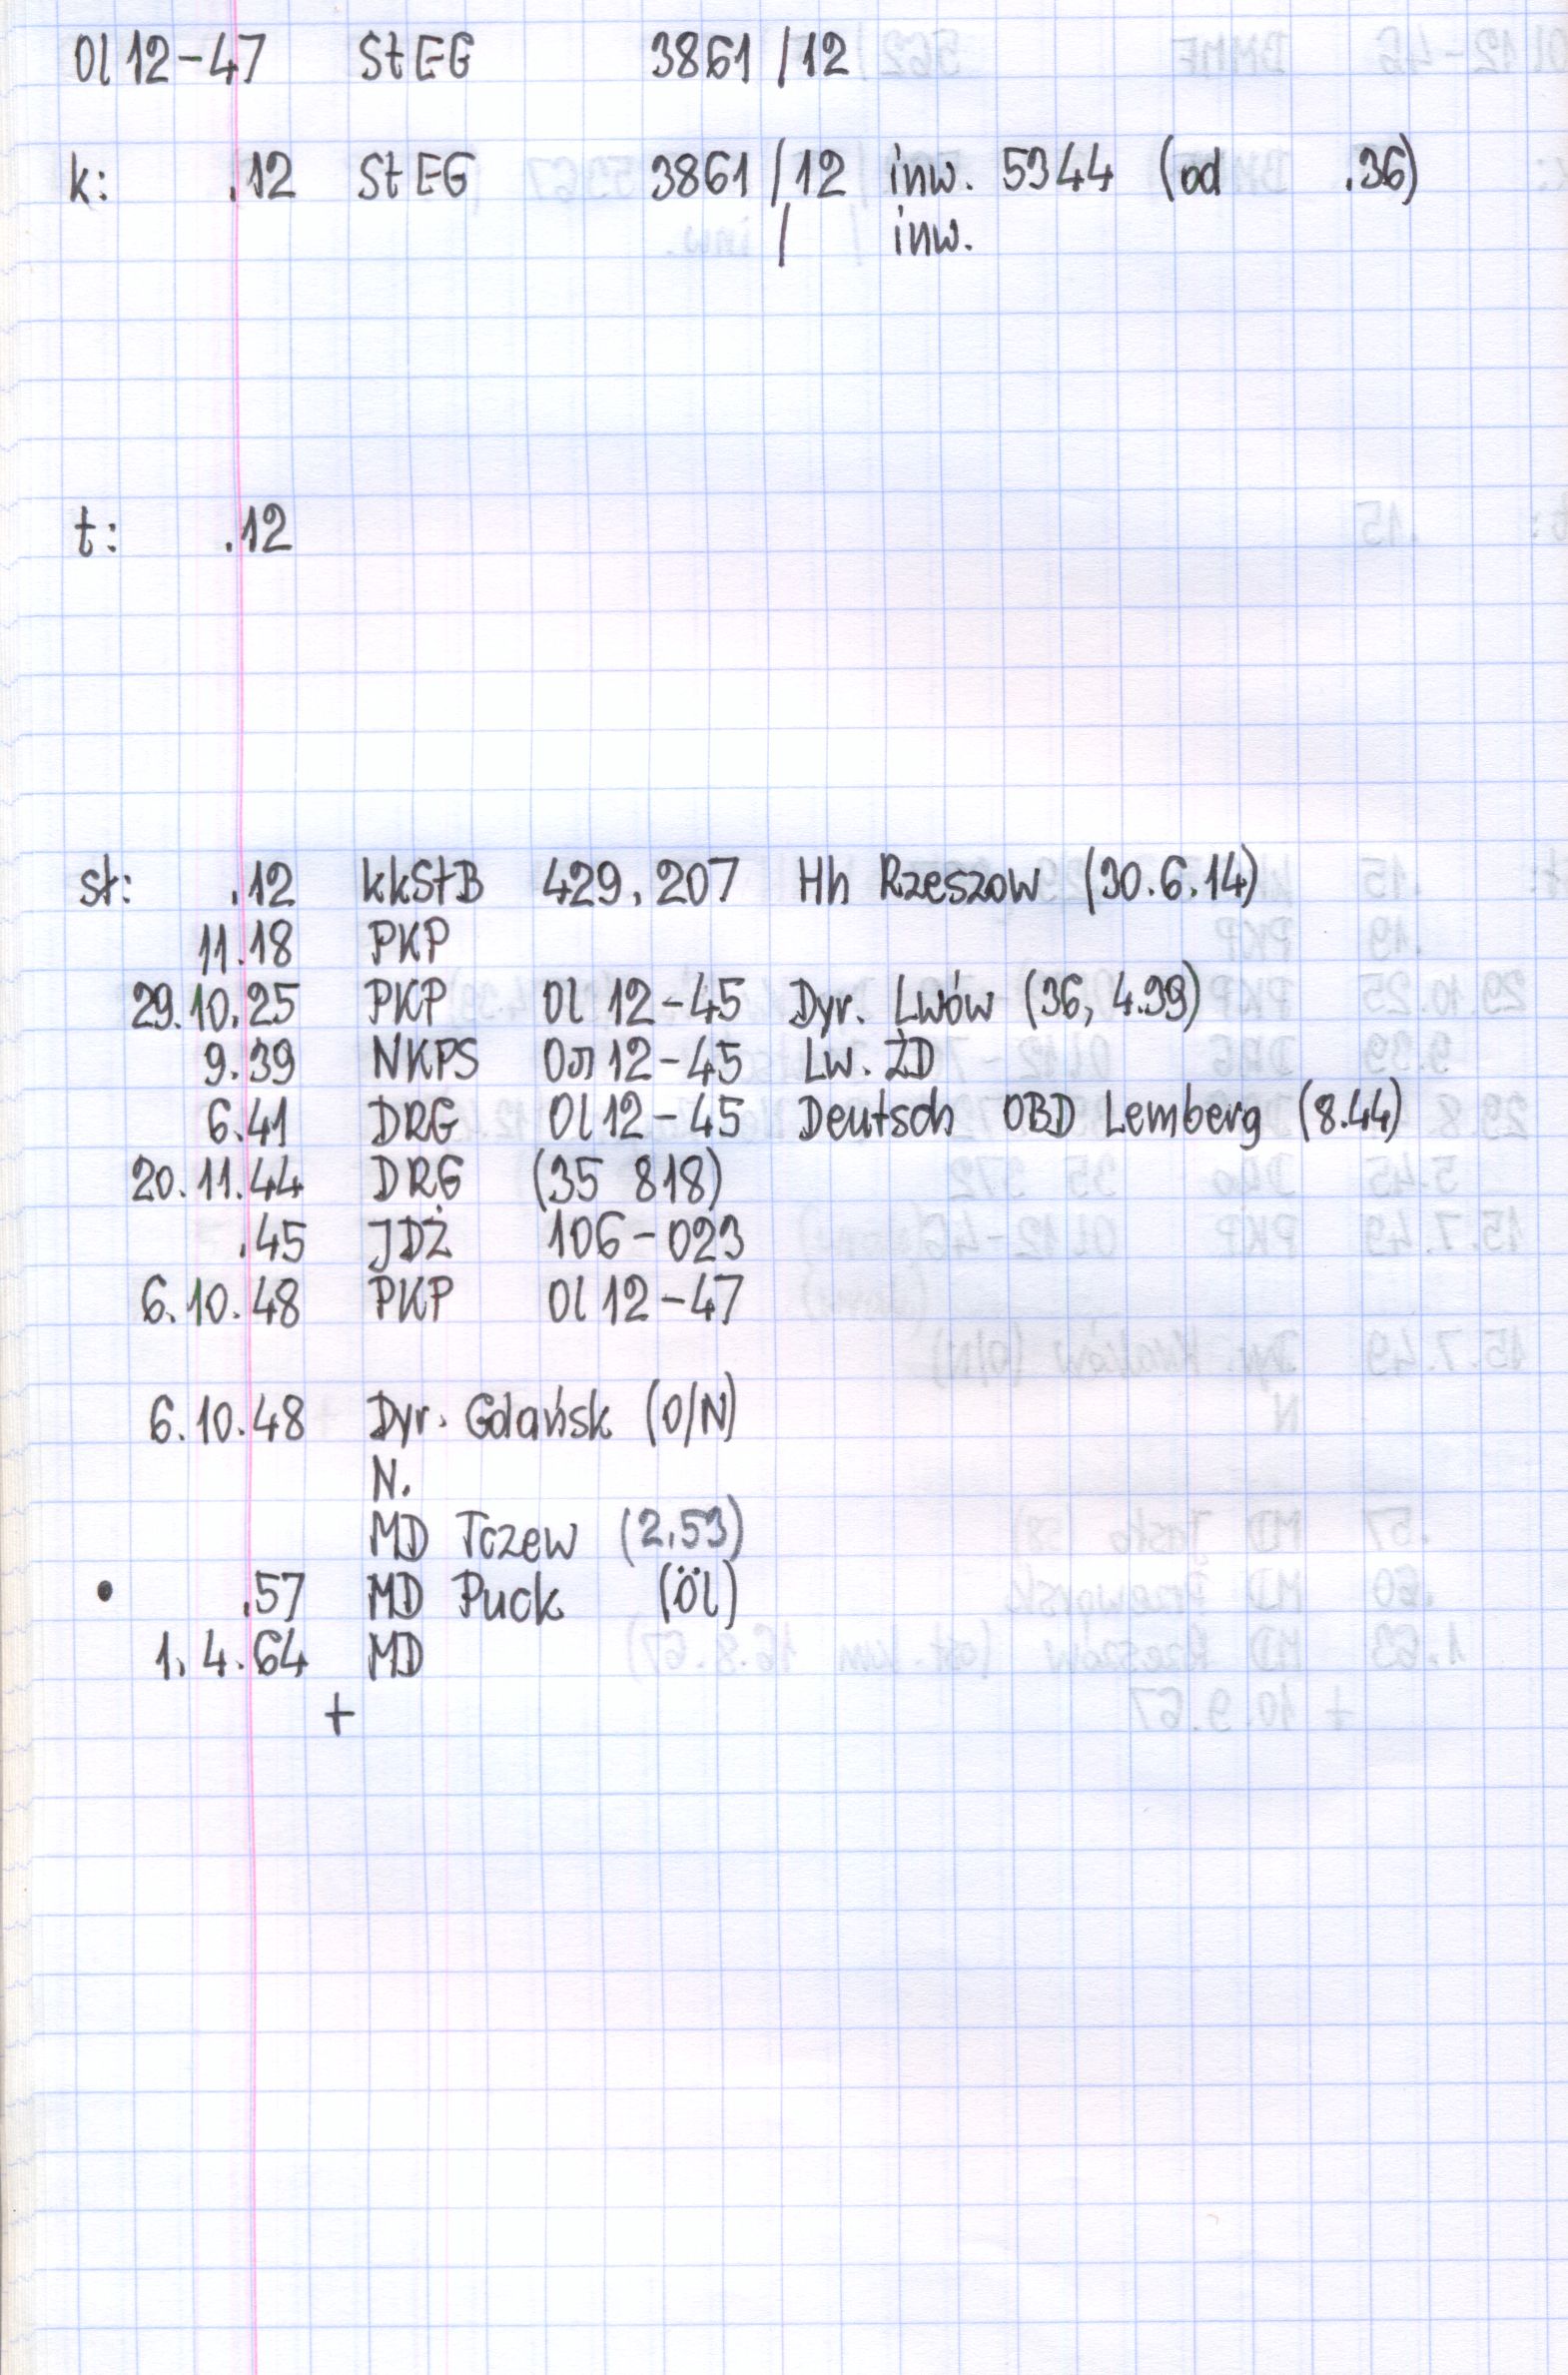 Ol 12-47 StEG 3861/12
k: .12 StEG 3861/12 inw. 5344 (od .36)
/ inw.
t: .12
st: .12 kkStB 429.207 Hh Rzeszow (30.6.14)
11.18 PKP
29.10.25 PKP Ol 12-45 Dyr. Lwów (36, 4.39)
9.39 NKPS Ол 12-45 Lw. ŻD
6.41 DRG Ol 12-45 Deutsch OBD Lemberg (8.44)
20.11.44 DRG (35 818)
.45 JDŻ 106-023
6.10.48 PKP Ol 12-47
6.10.48 Dyr. Gdańsk (O/N)
N.
MD Tczew (2.53)
• .57 MD Puck (Öl)
1.4.64 MD
+